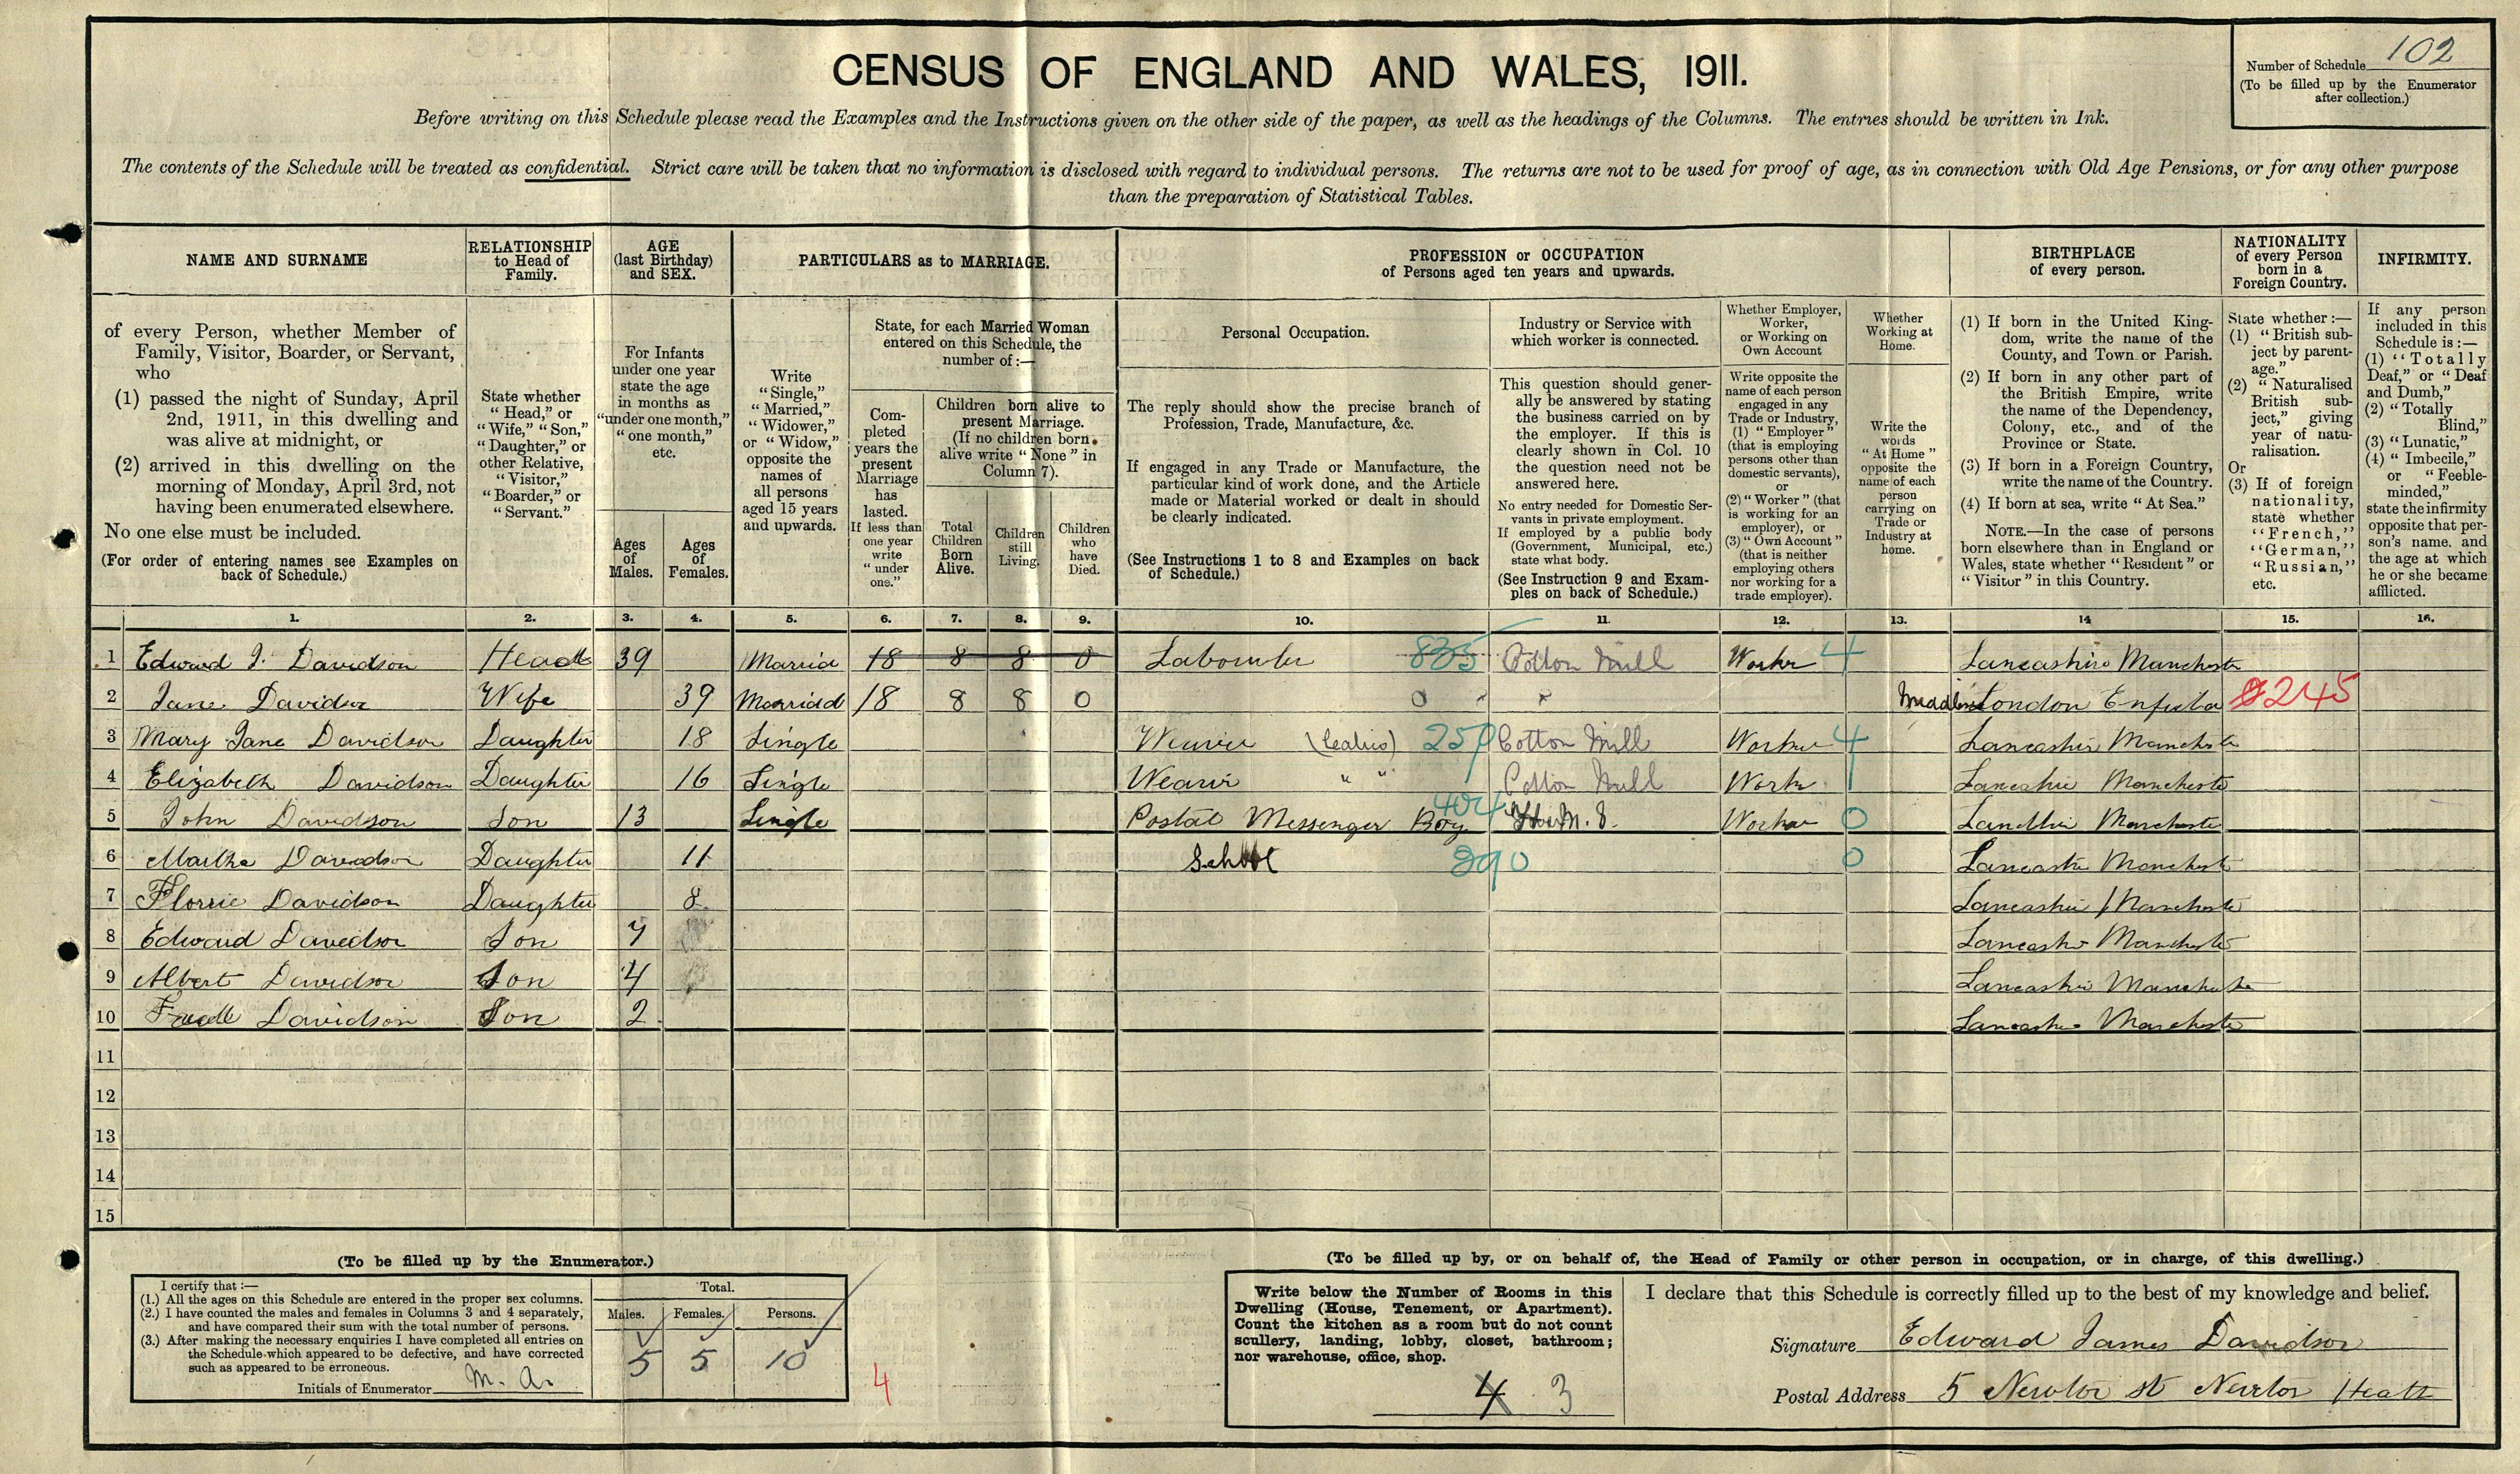 CENSUS OF ENGLAND AND WALES, 1911.
Number of Schedule 102
(To be filled up by the Enumerator
after collection.)
Before writing on this Schedule please read the Examples and the Instructions given on the other side of the paper, as well as the headings of the Columns. The entries should be written in Ink.
The contents of the Schedule will be treated as confidential. Strict care will be taken that no information is disclosed with regard to individual persons. The returns are not to be used for proof of age, as in connection with Old Age Pensions, or for any other purpose
than the preparation of Statistical Tables.
NAME AND SURNAME
of every Person, whether Member of
Family, Visitor, Boarder, or Servant,
who
(1) passed the night of Sunday, April
2nd, 1911, in this dwelling and
was alive at midnight, or
(2) arrived in this dwelling on the
morning of Monday, April 3rd, not
having been enumerated elsewhere.
No one else must be included.
(For order of entering names see Examples on
back of Schedule.)
RELATIONSHIP
to Head of
Family.
State whether
"Head," or
"Wife," "Son,"
"Daughter," or
other Relative,
"Visitor,"
"Boarder," or
"Servant."
AGE
(last Birthday)
and SEX.
For Infants
under one year
state the age
in months as
"under one month,"
"one month,"
etc.
Ages
of
Males.
Ages
of
Females.
PARTICULARS as to MARRIAGE.
Write
"Single,"
"Married,"
"Widower,"
or "Widow,"
opposite the
names of
all persons
aged 15 years
and upwards.
State, for each Married Woman
entered on this Schedule, the
number of:—
Com-
pleted
years the
present
Marriage
has
lasted.
If less than
one year
write
"under
one."
Children born alive to
present Marriage.
(If no children born
alive write "None" in
Column 7).
Total
Children
Born
Alive.
Children
still
Living.
Children
who
have
Died.
PROFESSION or OCCUPATION
of Persons aged ten years and upwards.
Personal Occupation.
The reply should show the precise branch of
Profession, Trade, Manufacture, &c.
If engaged in any Trade or Manufacture, the
particular kind of work done, and the Article
made or Material worked or dealt in should
be clearly indicated.
(See Instructions 1 to 8 and Examples on back
of Schedule.)
Industry or Service with
which worker is connected.
This question should gener-
ally be answered by stating
the business carried on by
the employer. If this is
clearly shown in Col. 10
the question need not be
answered here.
No entry needed for Domestic Ser-
vants in private employment.
If employed by a public body
(Government, Municipal, etc.)
state what body.
(See Instruction 9 and Exam-
ples on back of Schedule.)
Whether Employer,
Worker,
or Working on
Own Account
Write opposite the
name of each person
engaged in any
Trade or Industry,
(1) "Employer"
(that is employing
persons other than
domestic servants),
or
(2) "Worker" (that
is working for an
employer), or
(3) "Own Account"
(that is neither
employing others
nor working for a
trade employer).
Whether
Working at
Home.
Write the
words
"At Home"
opposite the
name of each
person
carrying on
Trade or
Industry at
home.
BIRTHPLACE
of every person.
(1) If born in the United King-
dom, write the name of the
County, and Town or Parish.
(2) If born in any other part of
the British Empire, write
the name of the Dependency,
Colony, etc., and of the
Province or State.
(3) If born in a Foreign Country,
write the name of the Country.
(4) If born at sea, write "At Sea."
NOTE.—In the case of persons
born elsewhere than in England or
Wales, state whether "Resident" or
"Visitor" in this Country.
NATIONALITY
of every Person
born in a
Foreign Country.
State whether:—
(1) "British sub-
ject by parent-
age."
(2) "Naturalised
British sub-
ject," giving
year of natu-
ralisation.
Or
(3) If of foreign
nationality,
state whether
"French,"
"German,"
"Russian,"
etc.
INFIRMITY.
If any person
included in this
Schedule is:—
(1) "Totally
Deaf," or "Deaf
and Dumb,"
(2) "Totally
Blind,"
(3) "Lunatic,"
(4) "Imbecile,"
or "Feeble-
minded,"
state the infirmity
opposite that per-
son's name, and
the age at which
he or she became
afflicted.
1. 2. 3. 4. 5. 6. 7. 8. 9. 10. 11. 12. 13. 14 15. 16.
1 Edward J. Davidson Head 39 Married 18 8 8 0 Labourer 835 Cotton Mill Worker 4 Lancashire Manchester
2 Jane Davidson Wife 39 Married 18 8 8 0 0 " " London Enfield 245
3 Mary Jane Davidson Daughter 18 Single Weaver (Calico) 250 Cotton Mill Worker 4 Lancashire Manchester
4 Elizabeth Davidson Daughter 16 Single Weaver " " Cotton Mill Worker Lancashire Manchester
5 John Davidson Son 13 Single Postal Messenger Boy 404 Worker 0 Lancashire Manchester
6 Martha Davidson Daughter 11 School 290 0 Lancashire Manchester
7 Florrie Davidson Daughter 8 Lancashire Manchester
8 Edward Davidson Son 7 Lancashire Manchester
9 Albert Davidson Son 4 Lancashire Manchester
10 Davidson Son 2 Lancashire Manchester
11
12
13
14
15
(To be filled up by the Enumerator.)
I certify that:—
(1.) All the ages on this Schedule are entered in the proper sex columns.
(2.) I have counted the males and females in Columns 3 and 4 separately,
and have compared their sum with the total number of persons.
(3.) After making the necessary enquiries I have completed all entries on
the Schedule which appeared to be defective, and have corrected
such as appeared to be erroneous.
Initials of Enumerator M. A.
Total.
Males. Females. Persons.
5 5 10
4
(To be filled up by, or on behalf of, the Head of Family or other person in occupation, or in charge, of this dwelling.)
Write below the Number of Rooms in this
Dwelling (House, Tenement, or Apartment).
Count the kitchen as a room but do not count
scullery, landing, lobby, closet, bathroom;
nor warehouse, office, shop.
4 3
I declare that this Schedule is correctly filled up to the best of my knowledge and belief.
Signature Edward James Davidson
Postal Address 5 Newton st Newton Heath